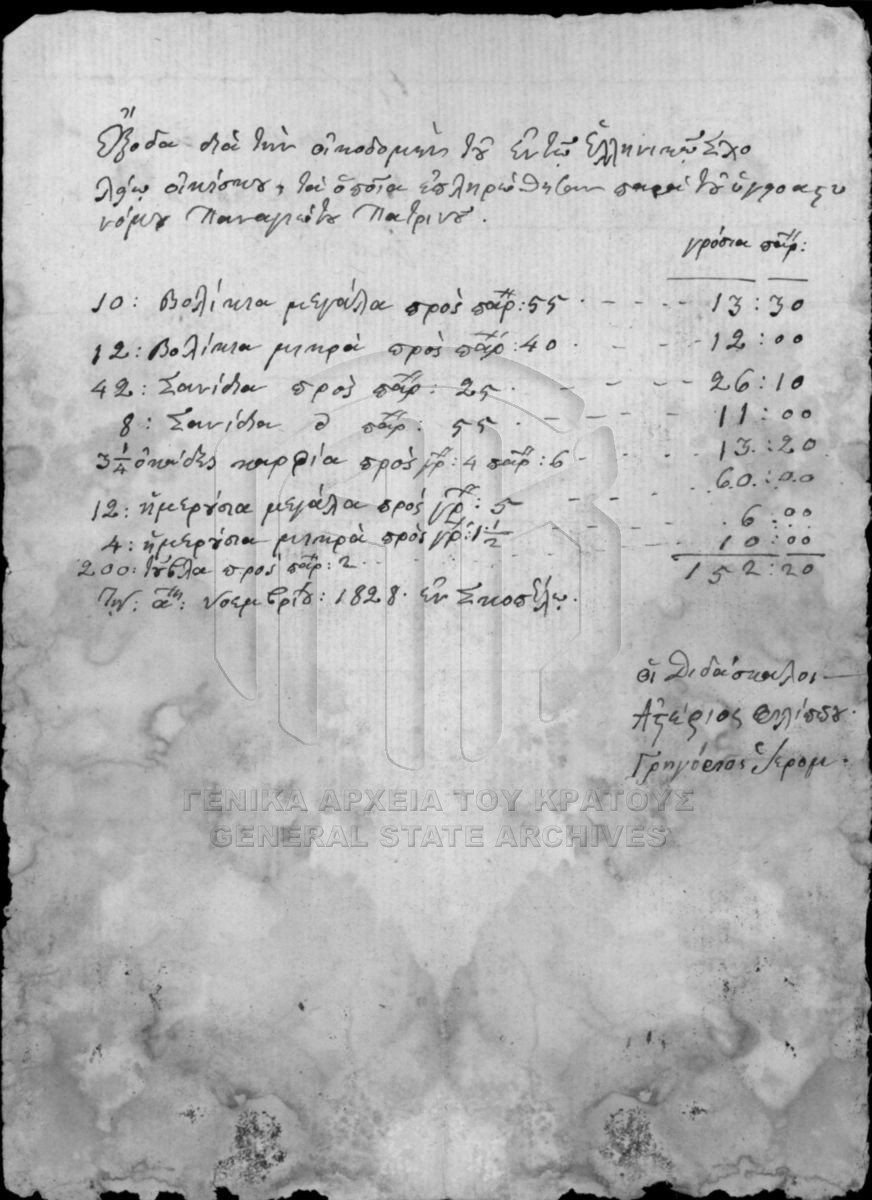 Ἔξοδα διὰ τὴν οἰκοδομὴν τοῦ ἐν τῷ Ἑλληνικῷ Σχο
λείῳ οἰκίσκου, τὰ ὁποῖα ἐπληρώθησαν παρὰ τοῦ ἀστυ
νόμου Παναγιώτου Πατρινοῦ.
γρόσια παρ:
10: Βολίκια μεγάλα πρὸς παρ: 55 · - - - - 13:30
12: Βολίκια μικρὰ πρὸς παρ: 40 · - - - - 12:00
42: Σανίδια πρὸς παρ: 25 · - - - - 26:10
8: Σανίδια παρ: 55 · - - - - 11:00
3 1/4 ὀκάδες καρφία πρὸς γρ: 4 παρ: 6 - - - 13:20
12: ἡμερούσια μεγάλα πρὸς γρ: 5 - - - 60:00
4: ἡμερούσια μικρὰ πρὸς γρ: 1 1/2 - - - 6:00
200: τοῦβλα πρὸς παρ: 2 · - - - 10:00
152:20
Τῇ: αῃ: νοεμβρίου: 1828. ἐν Σκοπέλῳ.
οἱ Διδάσκαλοι
Ἀστέριος Φιλίππου.
Γρηγόριος Ἱερομ.
ΓΕΝΙΚΑ ΑΡΧΕΙΑ ΤΟΥ ΚΡΑΤΟΥΣ
GENERAL STATE ARCHIVES